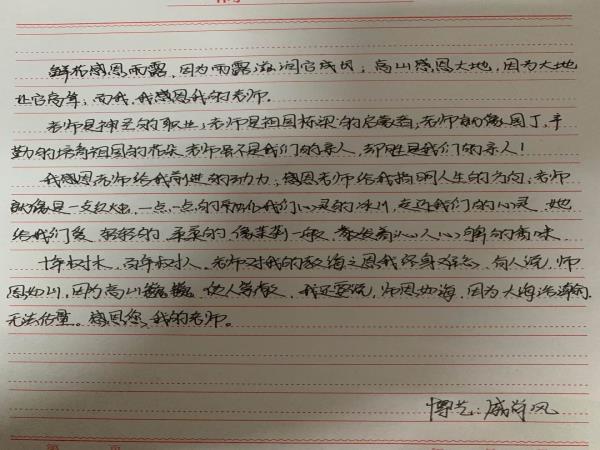 鲜花感恩雨露,因为雨露滋润它成长;高山感恩大地,因为大地
让它高耸;而我,我感恩我的老师。
老师是神圣的职业;老师是祖国栋梁的启蒙者;老师就像园丁,辛
勤的培育祖国的花朵,老师虽不是我们的亲人,却胜是我们的亲人!
我感恩老师给我前进的动力;感恩老师给我指明人生的方向;老师
就像是一支红烛,一点一点的融化我们心灵的冰川,走近我们的心灵,她
给我们爱,轻轻的,柔柔的,像茉莉一般,散发着沁人心脾的香味
十年树木,百年树人。老师对我的教诲之恩我终身难忘。有人说,师
恩如山,因为高山巍巍,使人崇敬。我还要说,师恩如海,因为大海浩瀚,
无法估量。感恩您,我的老师。
博艺:戚
风
第 页